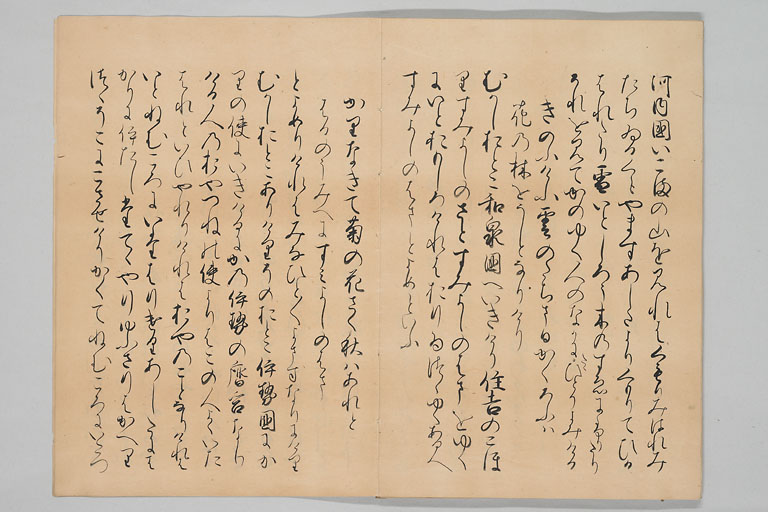 河内國いこまの山を見れはくもりみはれみ
たちゐるくもやますあしたよりくもりてひる
はれたり雪いとしろう木のすゑにふりたり
それを見てかのゆく人のなかにたゝひとりよみける
きのふけふ雲のたちまひかくろふは
花の林をうしとなりけり
むかしおとこ和泉國へいきけり住吉のこほ
りすみよしのさとすみよしのはまをゆく
にいとおもしろけれはおりゐつゝゆくある人
すみよしのはまとよめといふ
かりなきて菊の花さく秋はあれと
はるのうみへにすみよしのはま
とよめりけれはみなひと〳〵よますなりにけり
むかしおとこありけりそのおとこ伊勢國にか
りの使にいきけるにかの伊勢の齋宮なり
ける人のおやつねの使よりはこの人よくいた
はれといひやれりけれはおやのことなりけれは
いとねむころにいたはりけりあしたには
かりにいたしたてゝやりゆふさりはかへり
つゝそこにこさせけりかくてねむころにいたつ